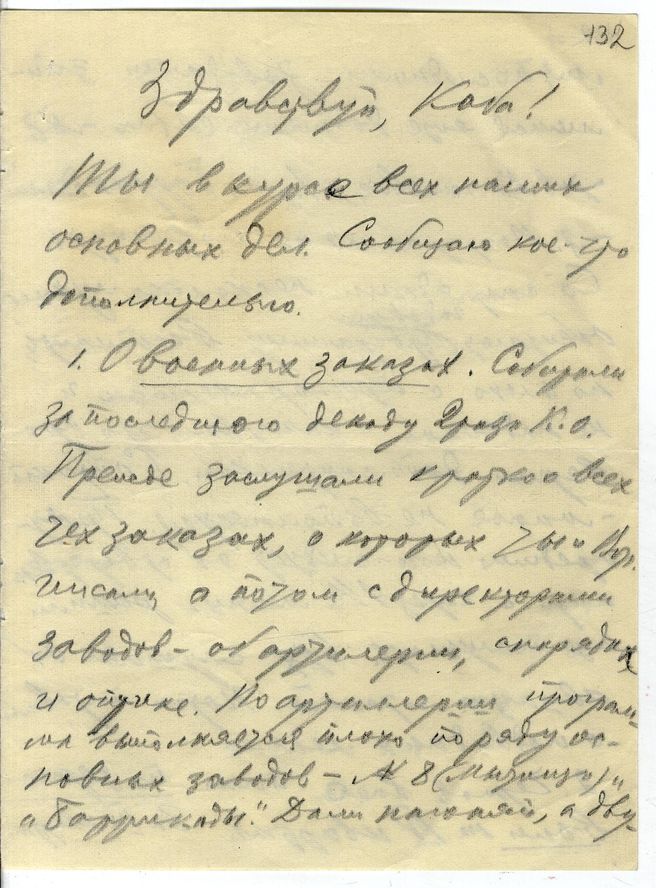 132
Здравствуй, Коба!
Ты в курсе всех наших
основных дел. Сообщаю кое-что
дополнительно.
1. О военных заказах. Собирали
за последнюю декаду 2 раза К.О.
Прежде заслушали кратко о всех
тех заказах, о которых ты и Вор.
писали, а потом с директорами
заводов – об артилерии, снарядах
и оптике. По артиллерии програм-
ма выполняется плохо по ряду ос-
новных заводов – № 8 (Мытищи) и
"Баррикады". Дали нагоняй, а дву-